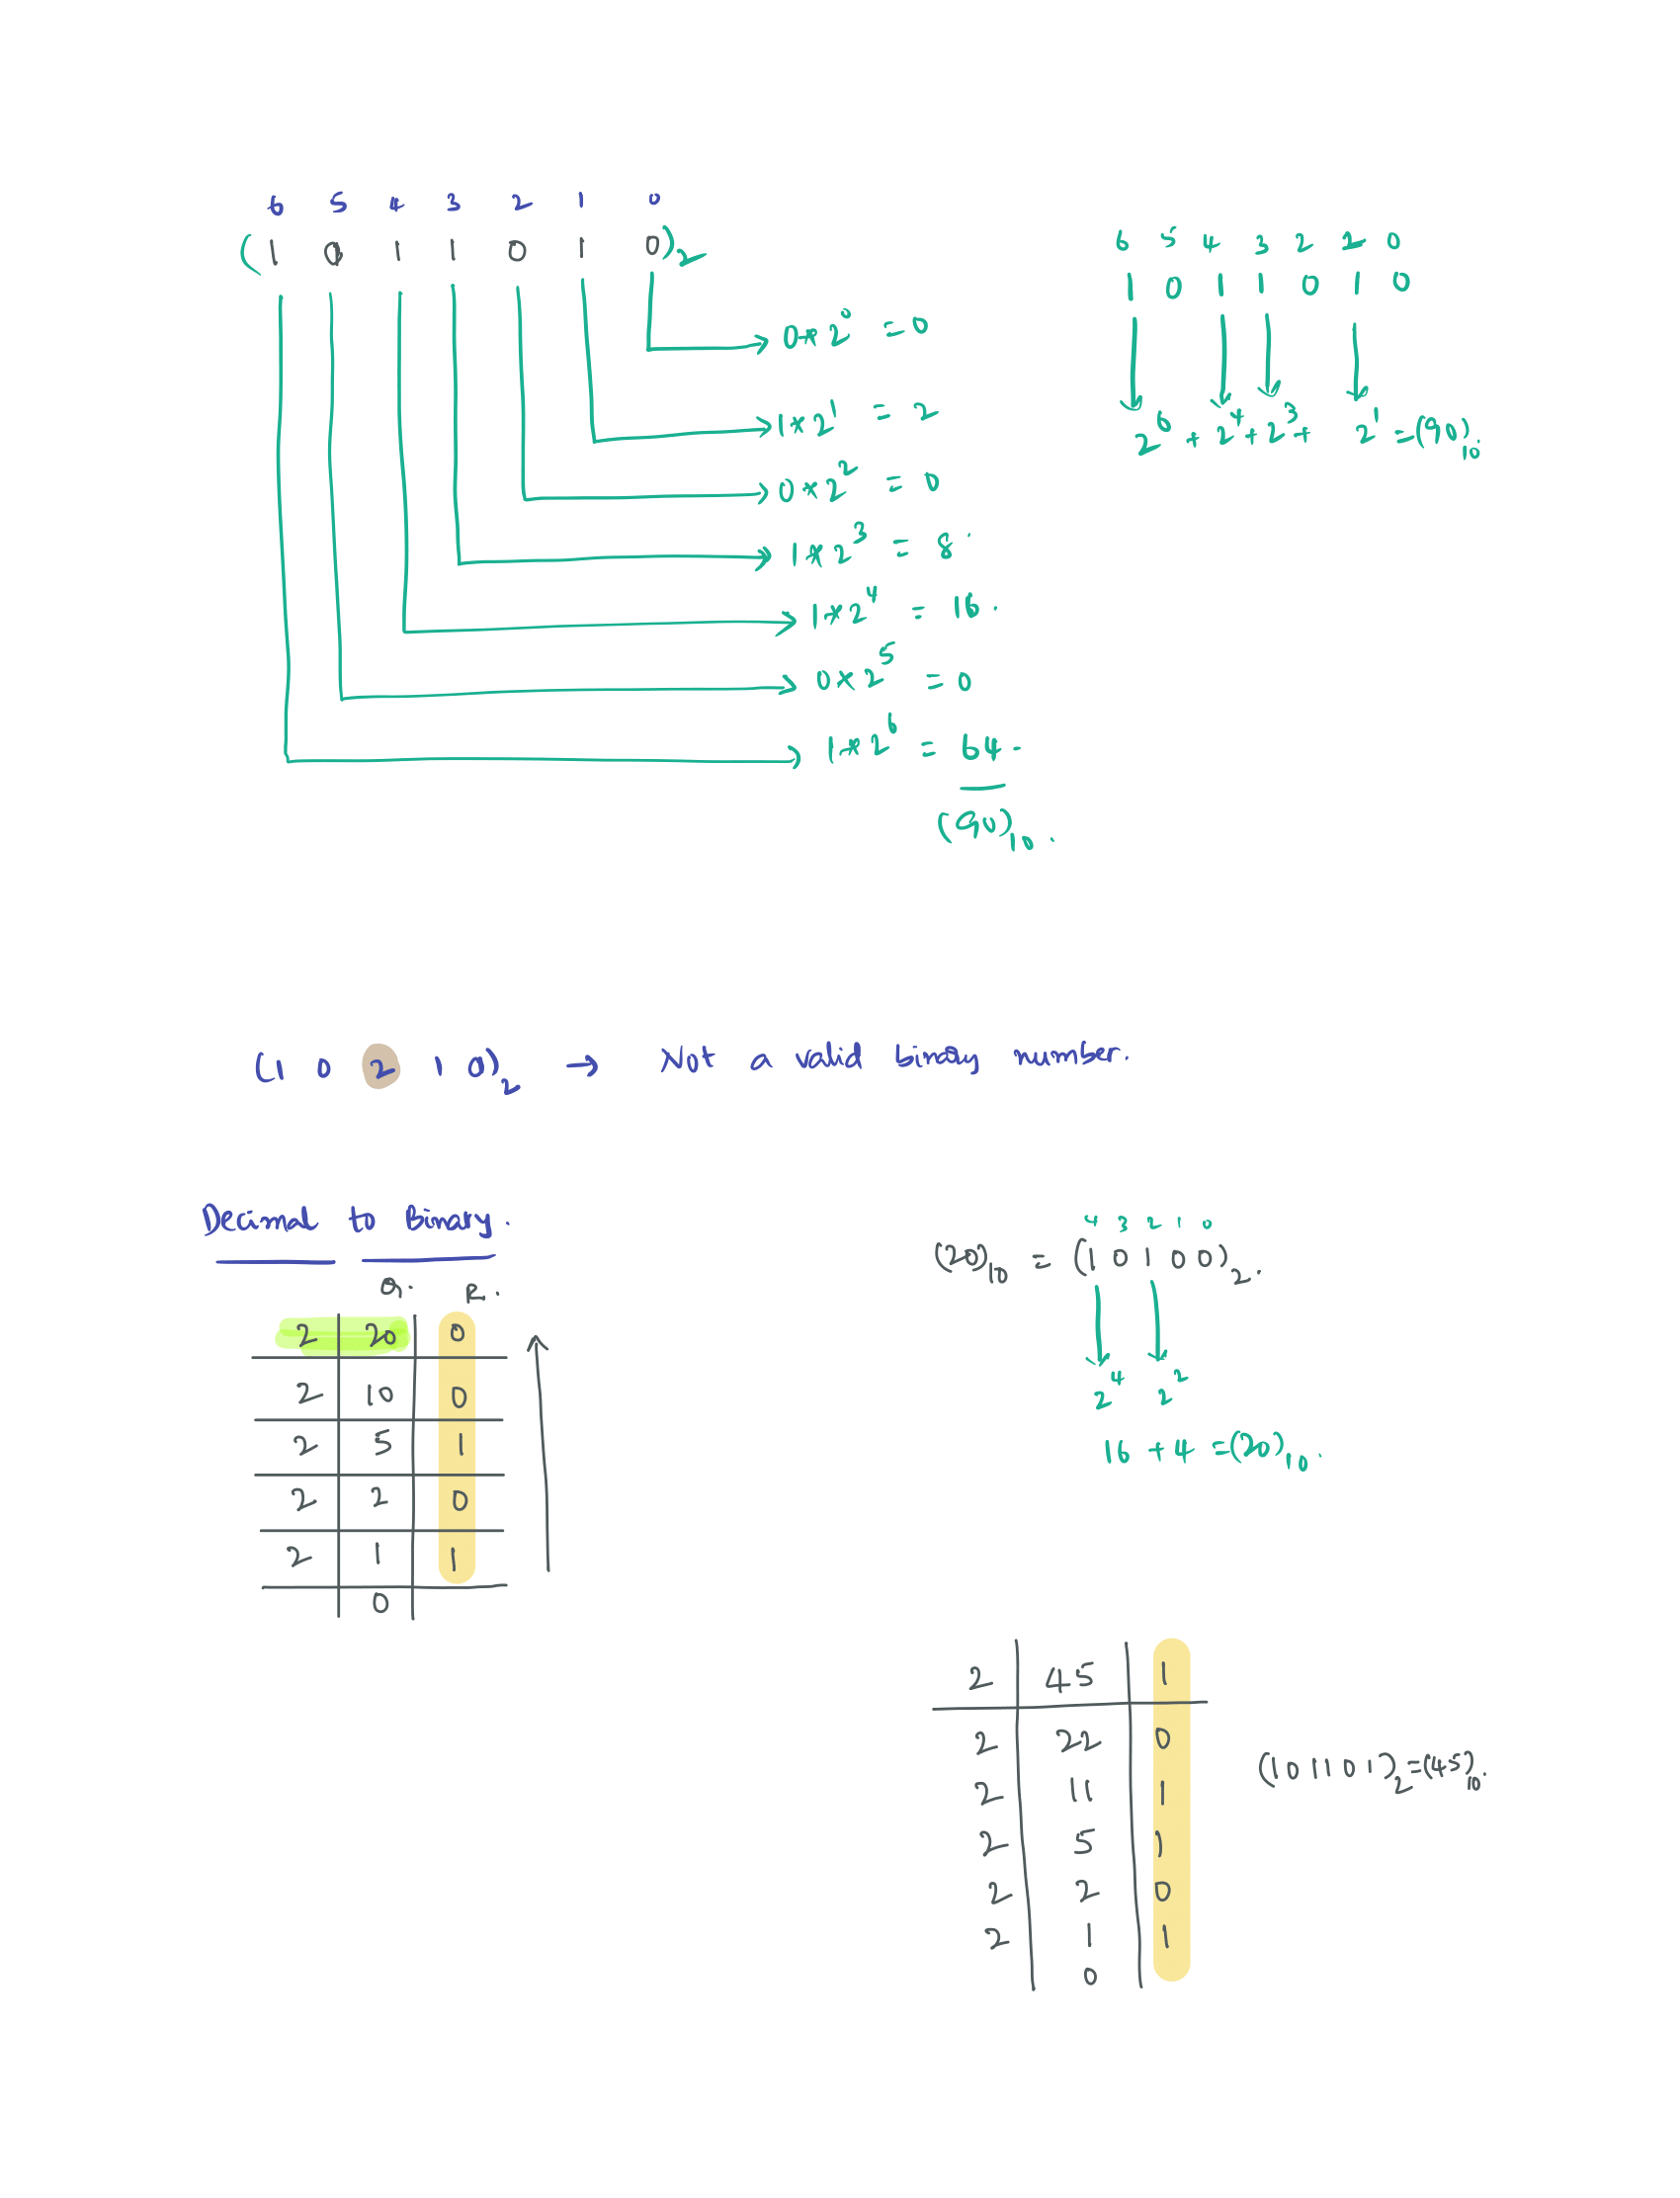 6 5 4 3 2 1 0
(1 0 1 1 0 1 0)₂
0*2⁰ = 0
1*2¹ = 2
0*2² = 0
1*2³ = 8.
1*2⁴ = 16.
0*2⁵ = 0
1*2⁶ = 64.
(90)₁₀.
6 5 4 3 2 2 0
1 0 1 1 0 1 0
2⁶ + 2⁴ + 2³ + 2¹ = (90)₁₀.
(1 0 2 1 0)₂ → Not a valid binary number.
Decimal to Binary.
Q. R.
2 20 0
2 10 0
2 5 1
2 2 0
2 1 1
0
4 3 2 1 0
(20)₁₀ = (1 0 1 0 0)₂.
2⁴ 2²
16 + 4 = (20)₁₀.
2 45 1
2 22 0
2 11 1
2 5 1
2 2 0
2 1 1
0
(1 0 1 1 0 1)₂ = (45)₁₀.